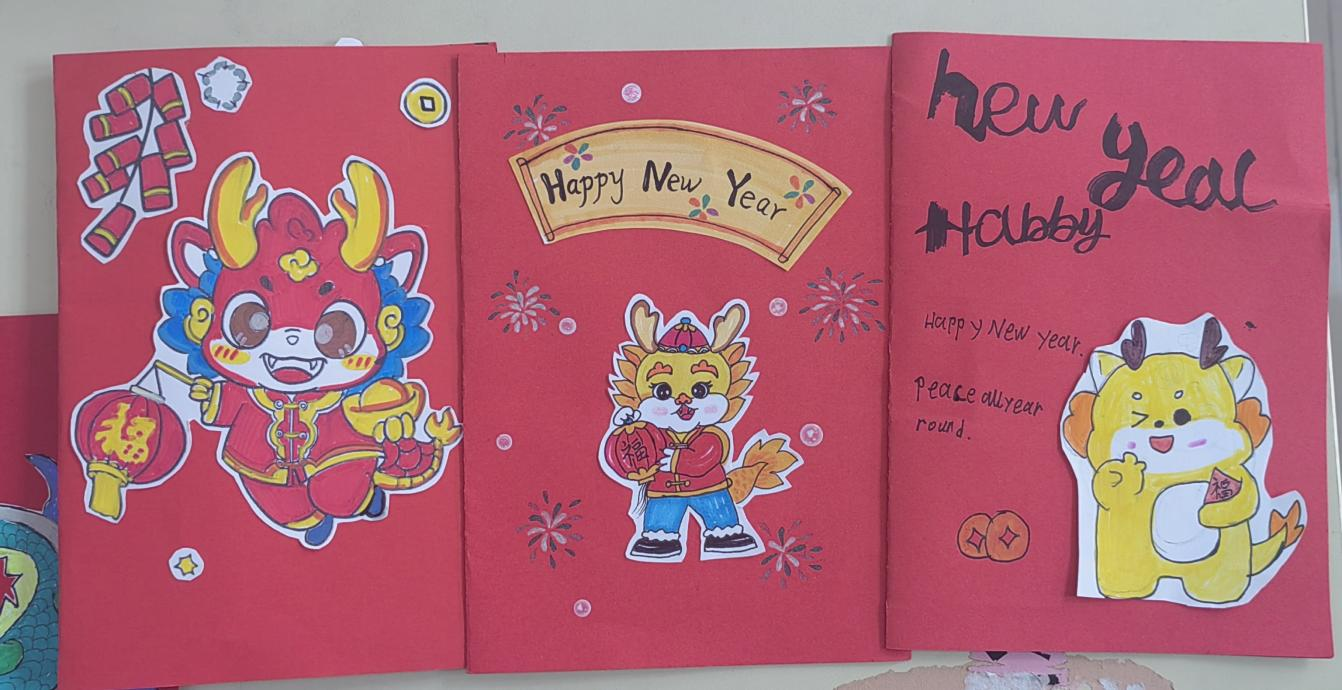 福
Happy New Year
福
new
year
Habby
Happy New Year.
Peace all year
round.
福